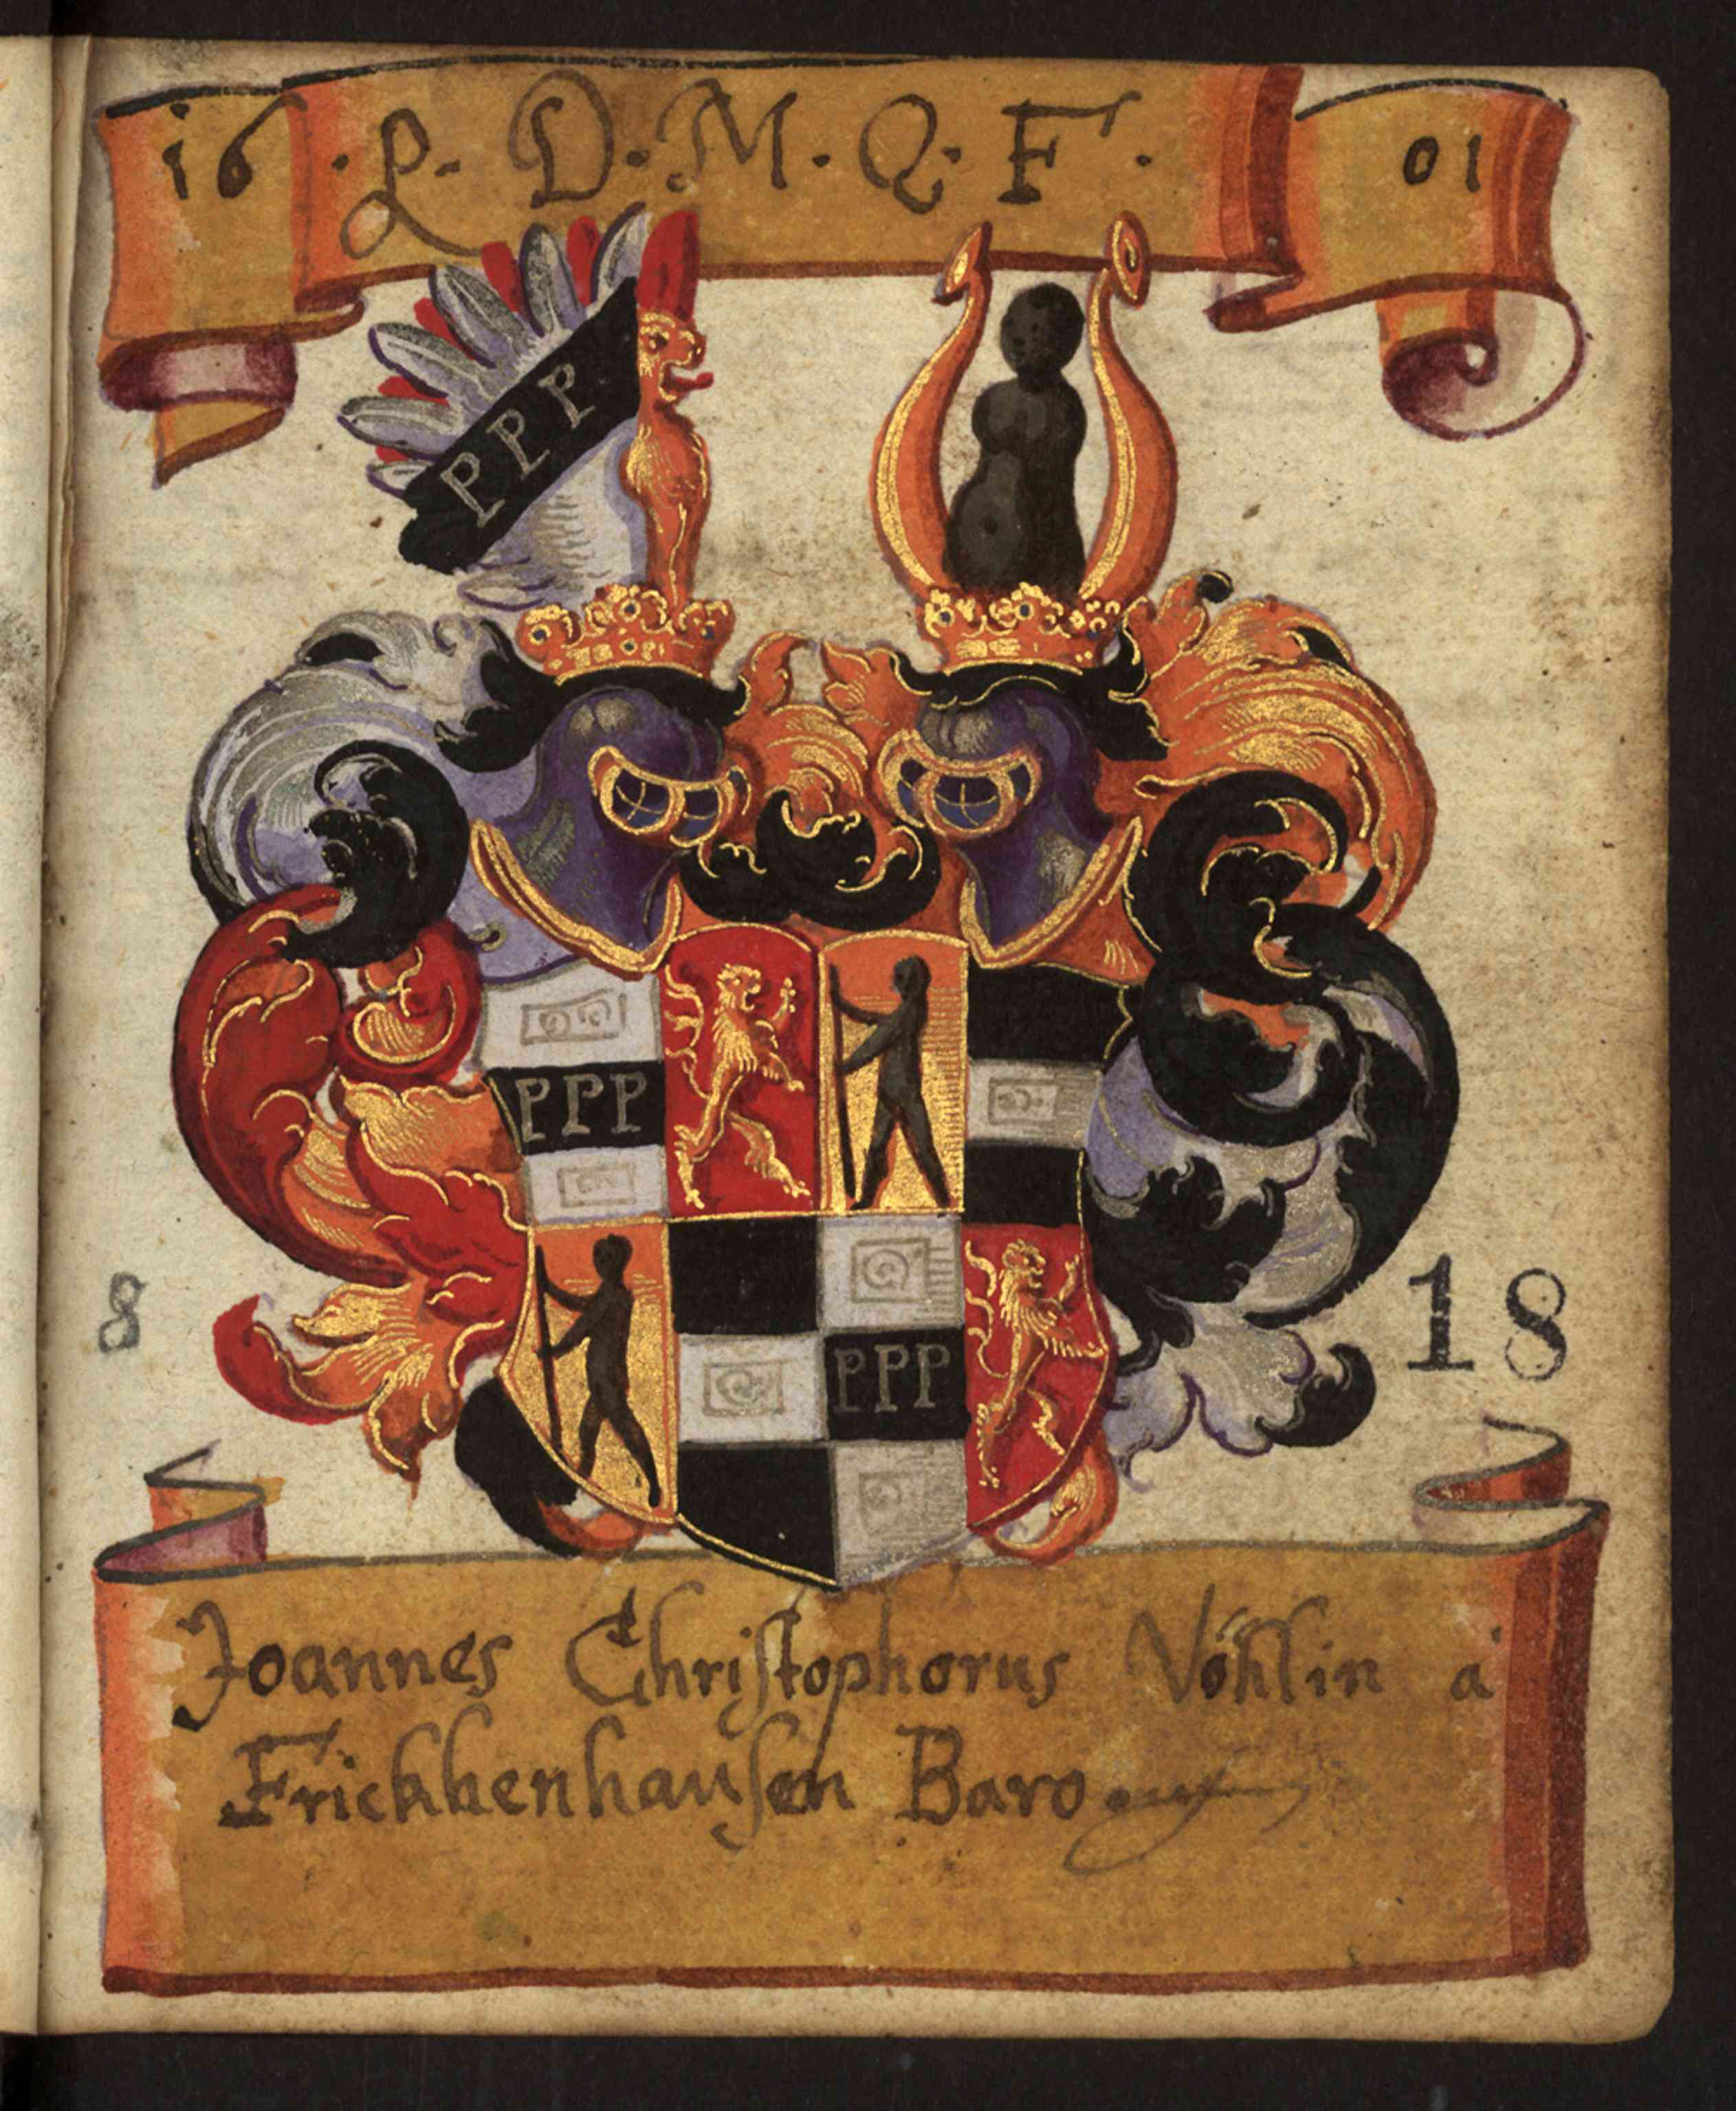 16 · L · D · M · Q · F · 01
PPP
PPP
8 18
PPP
Joannes Christophorus Vöhlin à
Frickhenhausen Baro